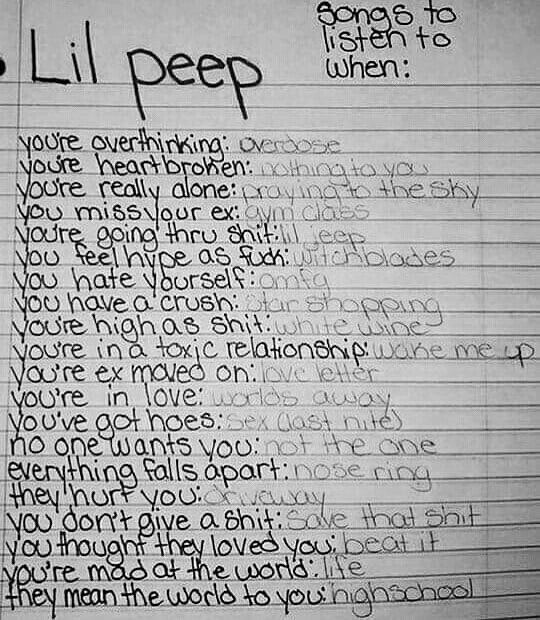 Lil peep
songs to
listen to
when:
you're overthinking: overdose
you're heartbroken: nothing to you
you're really alone: praying to the sky
you miss your ex: gym class
you're going thru shit: lil jeep
you feel hype as fuck: witchblades
you hate yourself: omfg
you have a crush: star shopping
you're high as shit: white wine
you're in a toxic relationship: wake me up
you're ex moved on: love letter
you're in love: worlds away
you've got hoes: sex (last nite)
no one wants you: not the one
everything falls apart: nose ring
they hurt you: driveway
you don't give a shit: save that shit
you thought they loved you: beat it
you're mad at the world: life
they mean the world to you: highschool